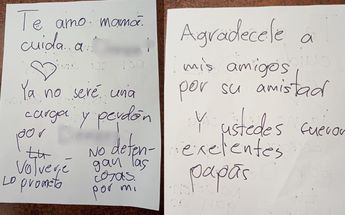 Te amo mamá
cuida a
Ya no seré una
carga y perdón
por
La
Volveré
Lo prometo
No deten-
gan las
cosas
por mi
Agradecele a
mis amigos
por su amistad
Y ustedes fueron
exelentes
papás